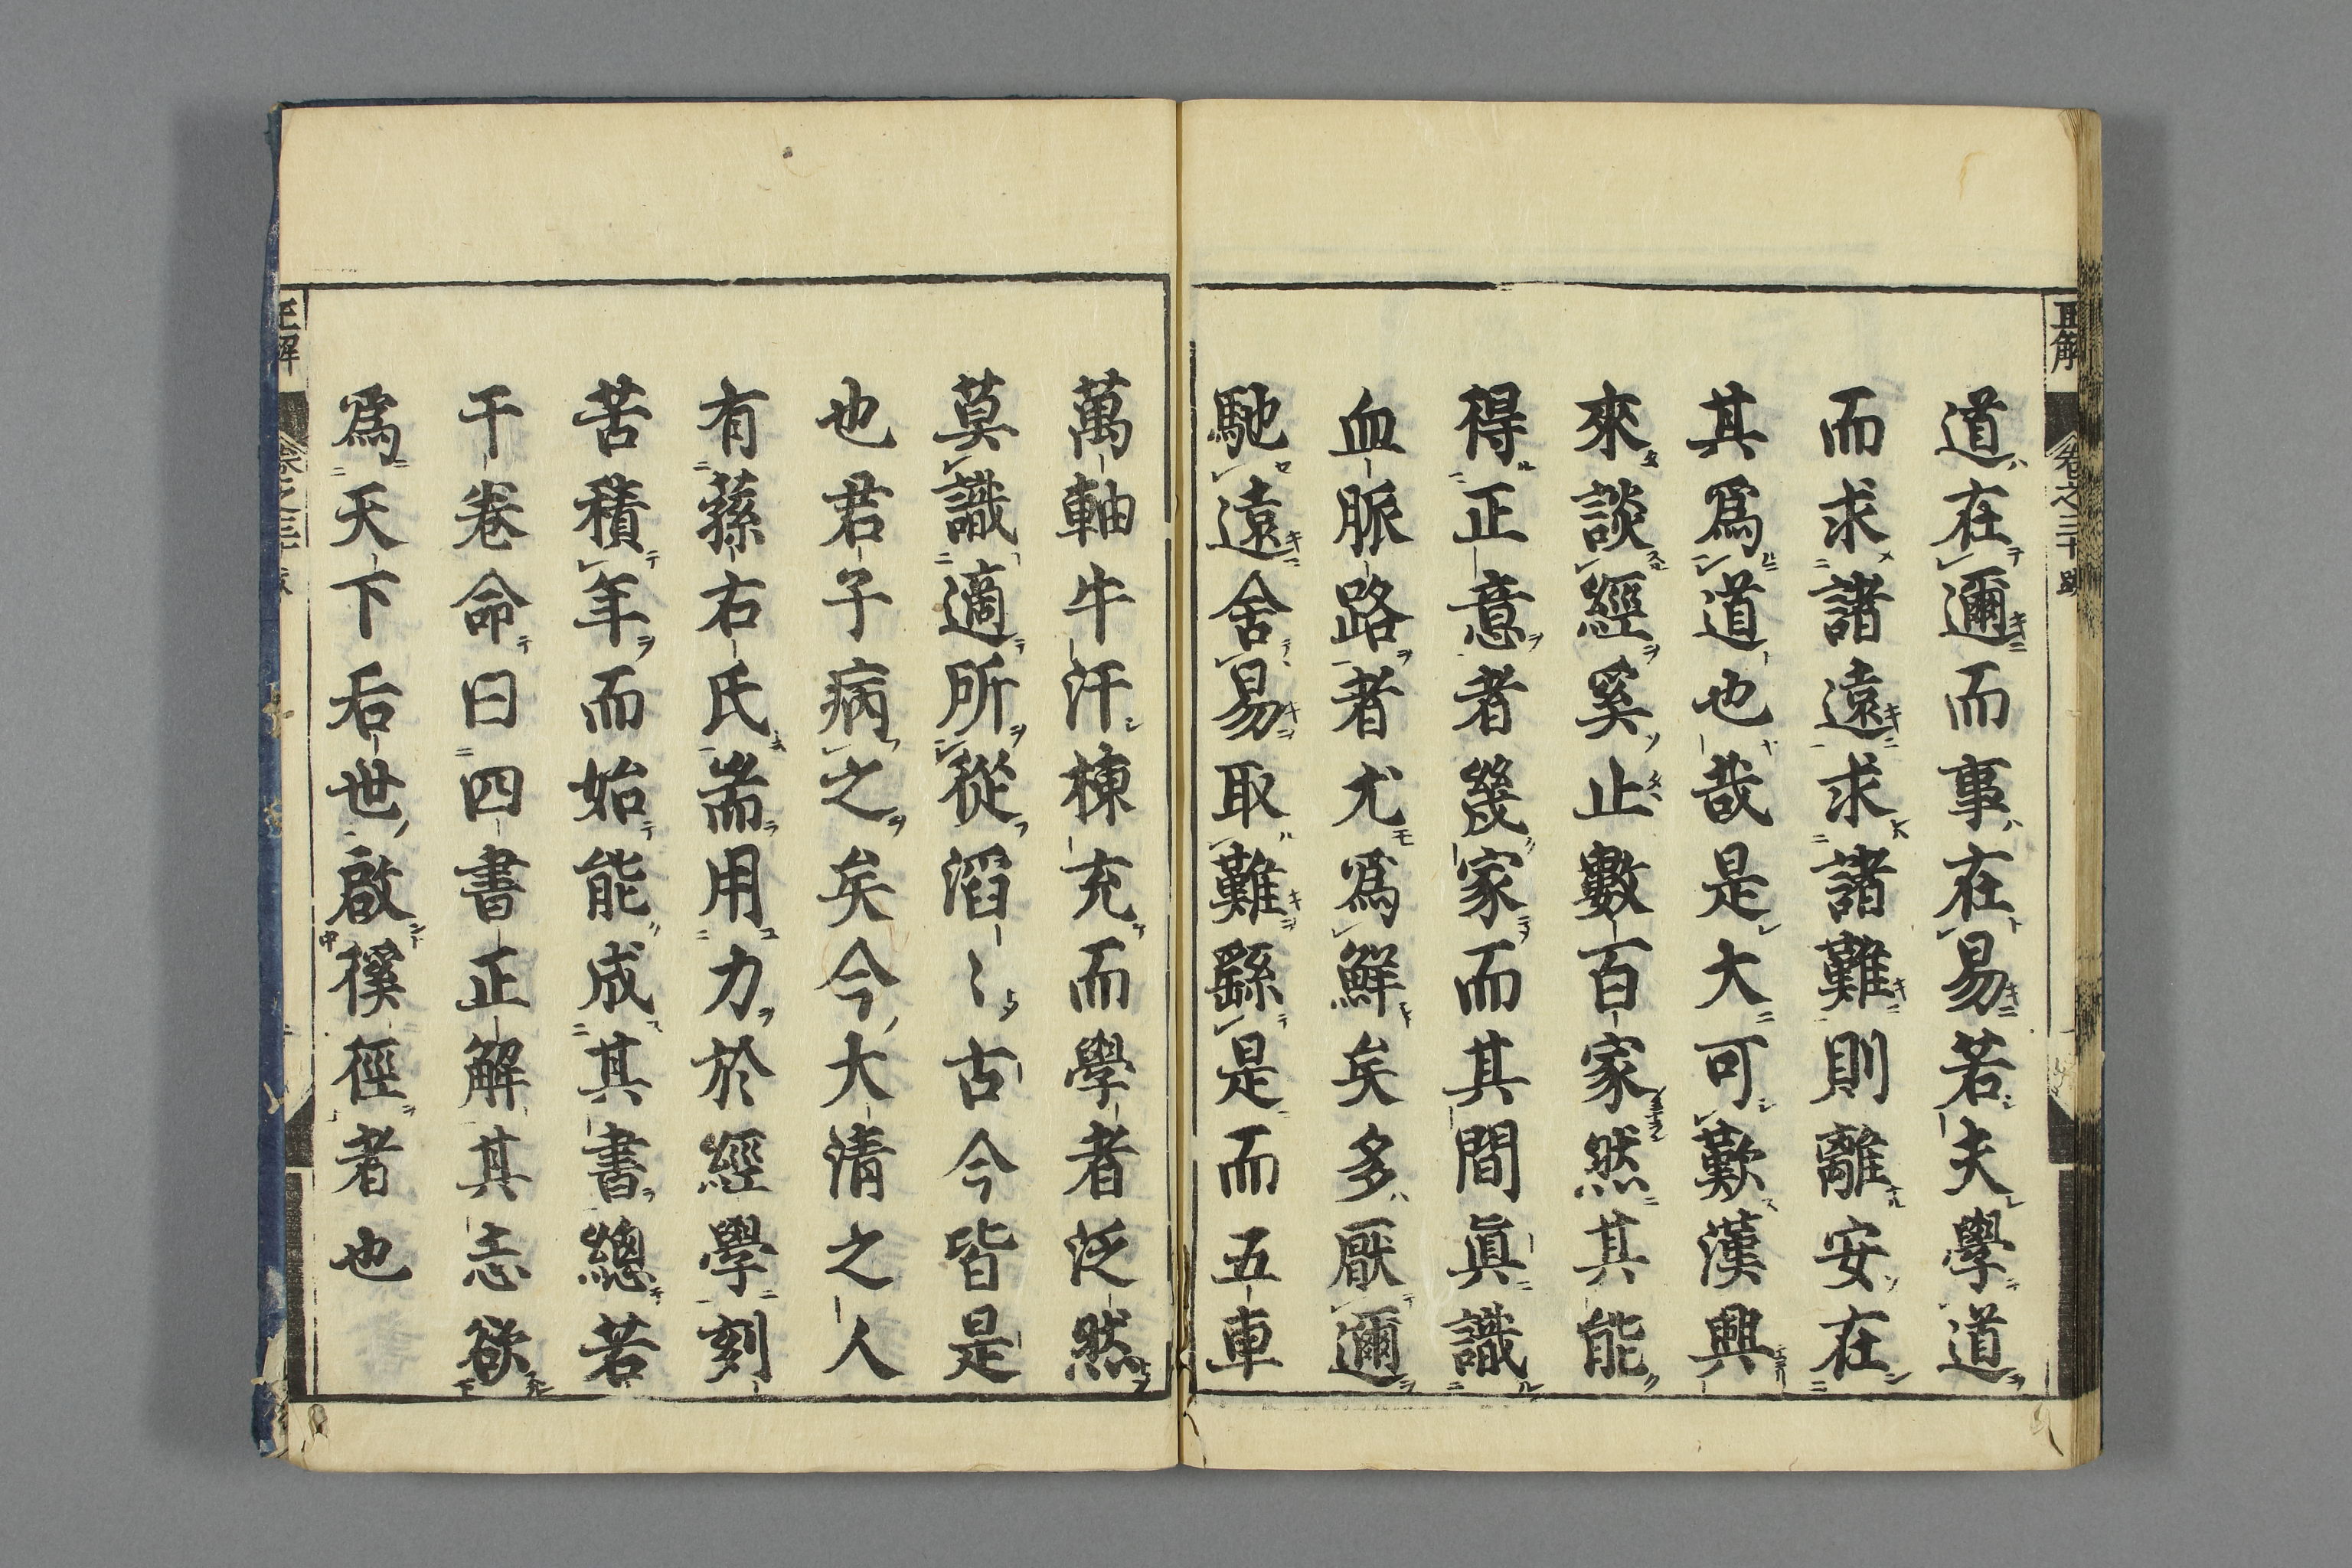 道在邇而事在易若夫學道
而求諸遠求諸難則離安在
其爲道也哉是大可歎漢興
來談經奚止數百家然其能
得正意者幾家而其間眞識
血脈路者尤爲鮮矣多厭邇
馳遠舍易取難繇是而五車
萬軸牛汗棟充而學者泛然
莫識適所從滔〻古今皆是
也君子病之矣今大清之人
有蓀右氏耑用力於經學刻
苦積年而始能成其書總若
干卷命曰四書正解其志欲
爲天下后世啟徯徑者也